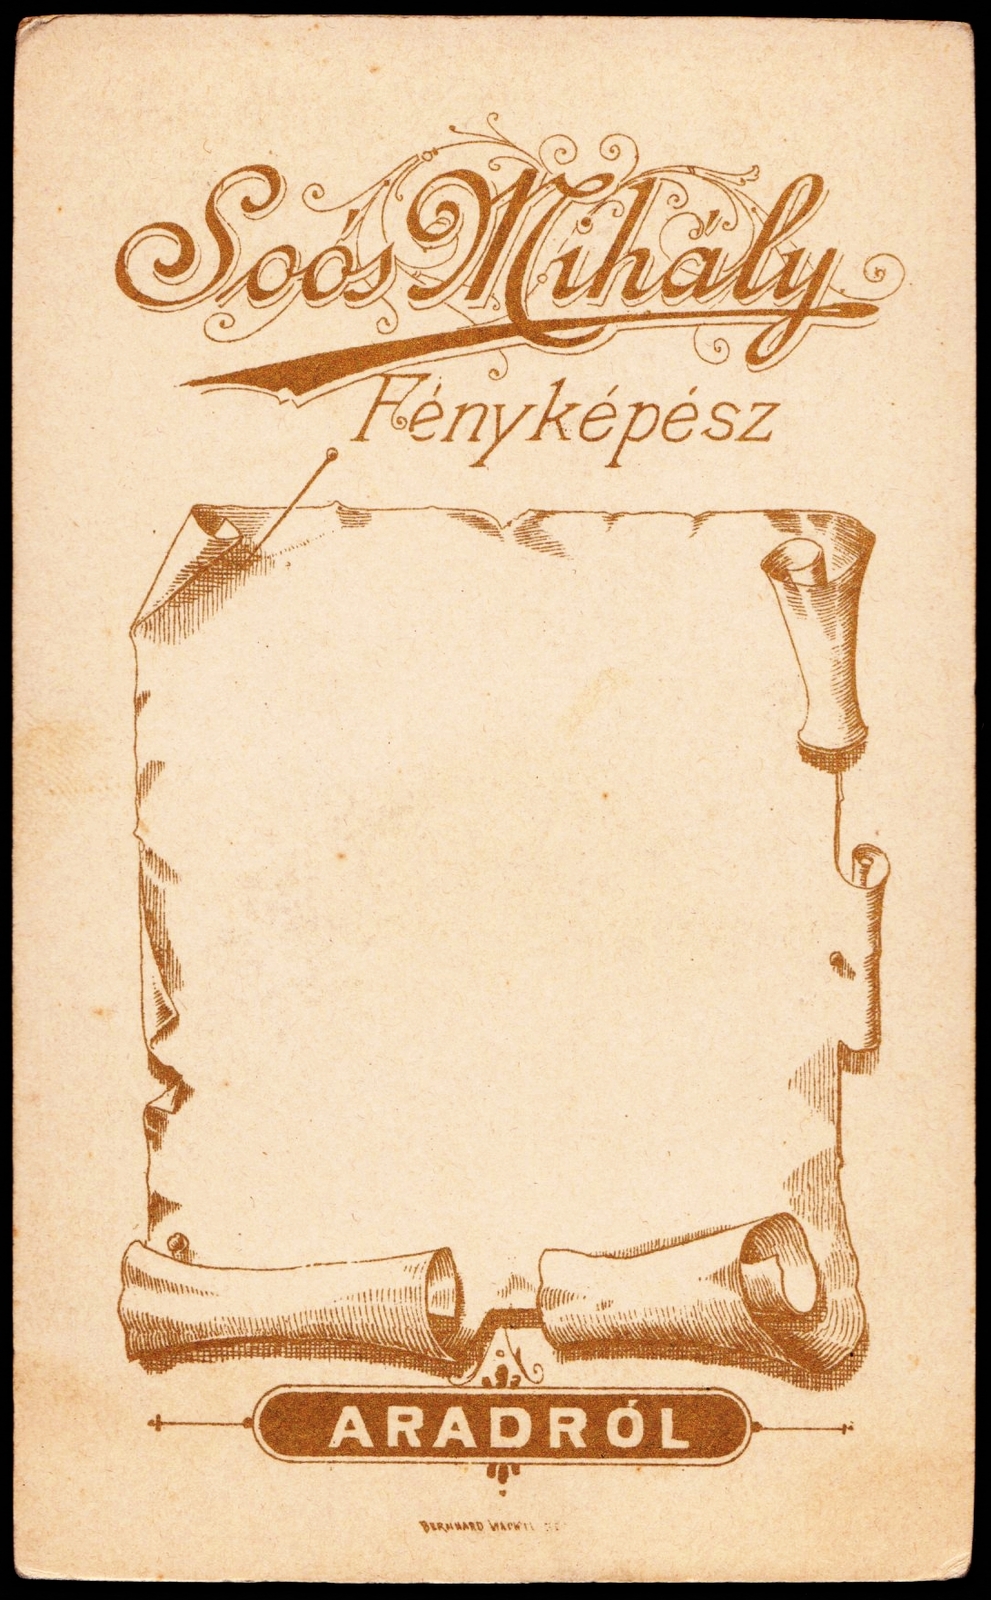 Soós Mihály
Fényképész
ARADRÓL
BERNHARD WACHTL